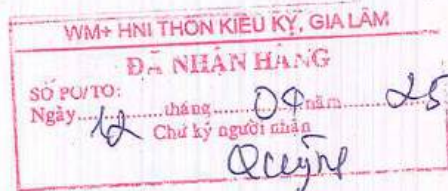 WM+ HNI THÔN KIÊU KỴ, GIA LÂM
ĐÃ NHẬN HÀNG
SỐ PO/TO:
Ngày 12 tháng 04 năm 25
Chữ ký người nhận
Quỳnh